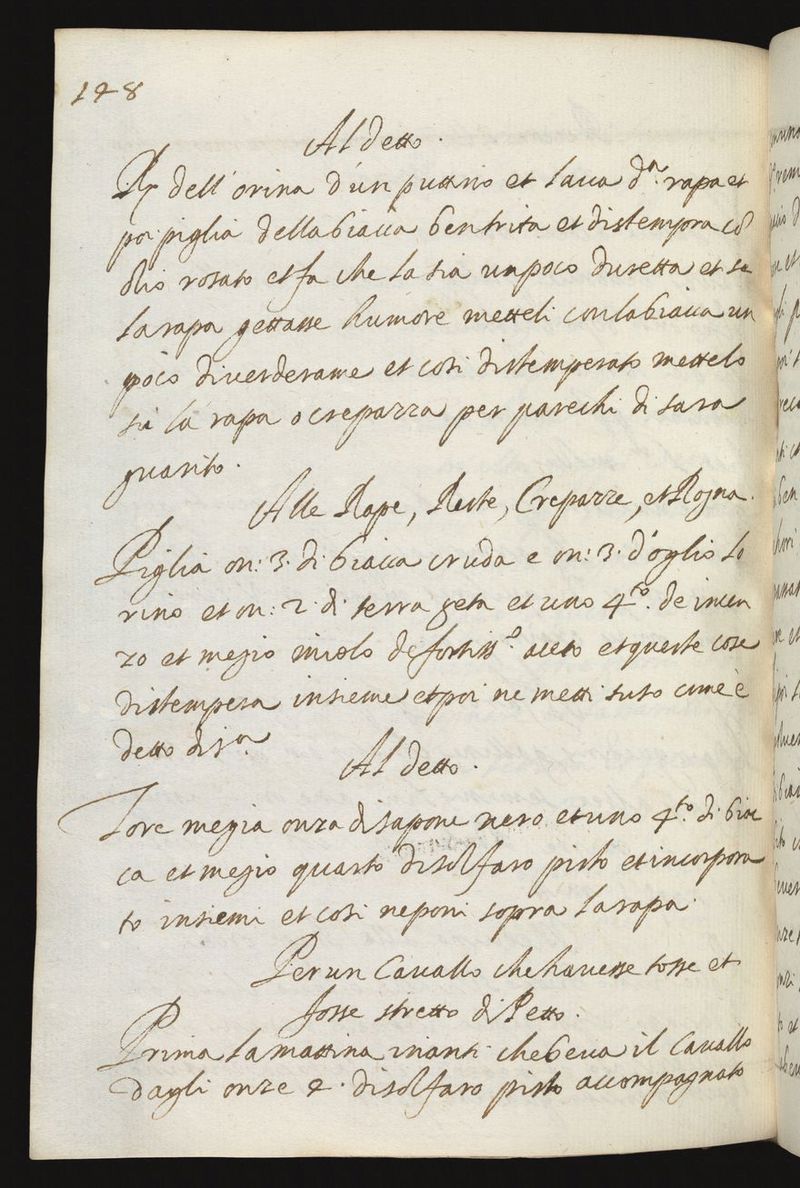 148
Al detto.
Rx dell'orina d'un puttino et laua d.ª rapa et
poi piglia della biacca ben trita et distempera cõ
olio rosato et fa che la sia un poco duretta et se
la rapa gettasse humore metteli con la biacca un
poco di verderame et cosi distemperato mettelo
sù la rapa o crepazza per parechi dì sara
guarito.
Alle Rape, Reste, Crepazze, et Rogna.
Piglia on: 3. di biacca cruda e on: 3. d'oglio lo
rino et on: 2. di terra geta et uno 4.º de incen
zo et megio miolo de fortiss.º aceto et queste cose
distempera insieme et poi ne metti suso come è
detto di s.ª
Al detto.
Tore megia onza di sapone nero et uno 4.to di biac
ca et megio quarto di solfaro pisto et incorpora
to insiemi et cosi neponi sopra la rapa.
Per un Cauallo che hauesse tosse et
fosse stretto di Petto.
Prima la mattina inanti che beua il Cauallo
dagli onze 4. di solfaro pisto accompagnato